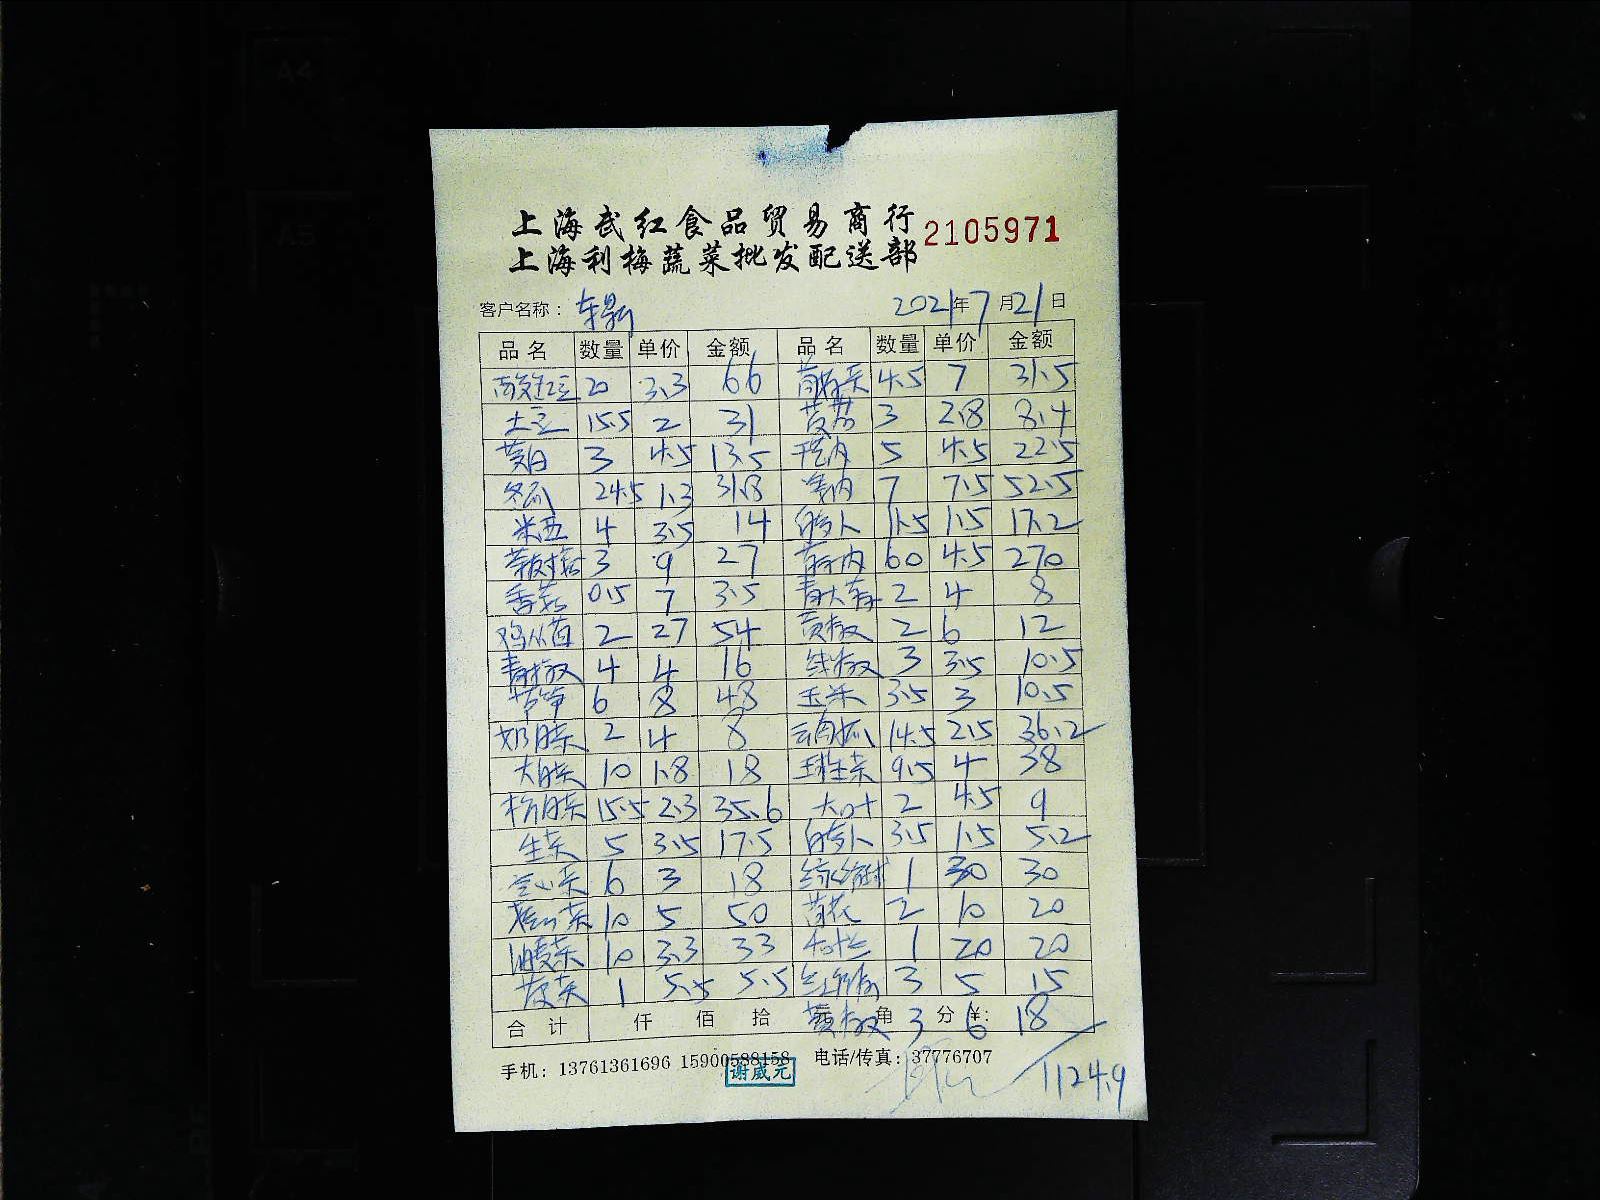 上海武红食品贸易商行
上海利梅蔬菜批发配送部 2105971
客户名称: 2021年7月21日
品名 数量 单价 金额 品名 数量 单价 金额
20 3.3 66 4.5 7 31.5
土豆 15.5 2 31 3 2.8 8.4
茭白 3 4.5 13.5 5 4.5 22.5
冬瓜 24.5 1.3 31.8 7 7.5 52.5
米西 4 3.5 14 11.5 1.5 17.2
茶树菇 3 9 27 60 4.5 270
香菇 0.5 7 3.5 2 4 8
鸡从菌 2 27 54 黄椒 2 6 12
青椒 4 4 16 线椒 3 3.5 10.5
6 8 48 玉米 3.5 3 10.5
奶白菜 2 4 8 14.5 2.5 36.2
大白菜 10 1.8 18 球生菜 9.5 4 38
杭白菜 15.5 2.3 35.6 大叶 2 4.5 9
生菜 5 3.5 17.5 3.5 1.5 5.2
空心菜 6 3 18 1 30 30
10 5 50 2 10 20
油麦菜 10 3.3 33 1 20 20
菠菜 1 5.5 5.5 3 5 15
合计 仟 佰 拾 元 角 分 ¥: 黄椒 3 6 18
手机: 13761361696 15900588158 电话/传真: 37776707
谢威元 1124.9